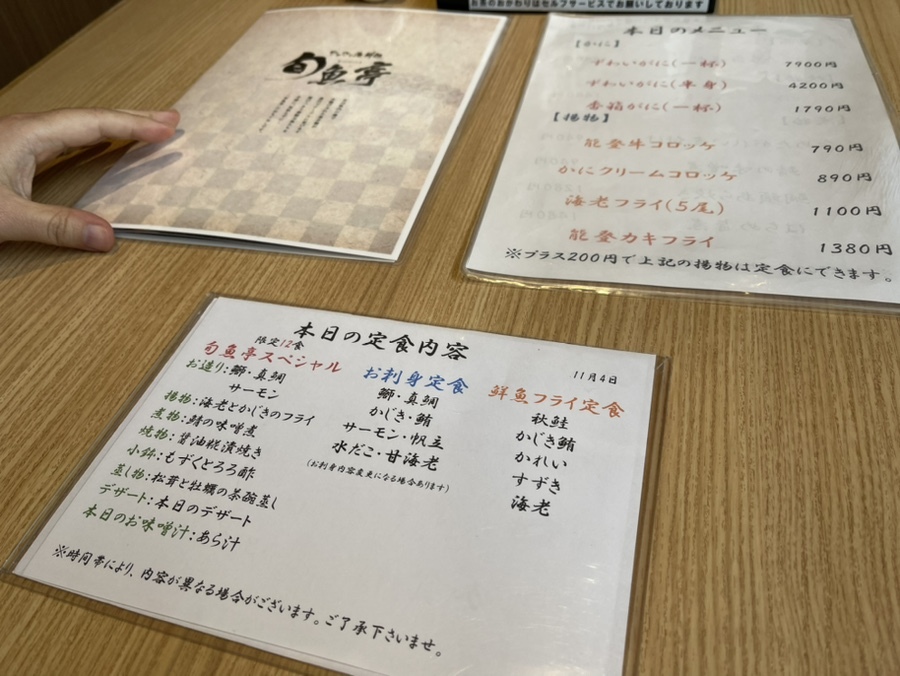 お茶のおかわりはセルフサービスでお願いしております
旬魚亭
本日のメニュー
【かに】
ずわいがに(一杯) 7900円
ずわいがに(半身) 4200円
香箱がに(一杯) 1790円
【揚物】
能登牛コロッケ 790円
かにクリームコロッケ 890円
海老フライ(5尾) 1100円
能登カキフライ 1380円
※プラス200円で上記の揚物は定食にできます。
本日の定食内容
11月4日
限定12食
旬魚亭スペシャル
お造り:鰤・真鯛
サーモン
揚物:海老とかじきのフライ
煮物:鯖の味噌煮
焼物:醤油糀漬焼き
小鉢:もずくとろろ酢
蒸し物:松茸と牡蠣の茶碗蒸し
デザート:本日のデザート
本日のお味噌汁:あら汁
お刺身定食
鰤・真鯛
かじき・鮪
サーモン・帆立
水だこ・甘海老
(お刺身内容変更になる場合あります)
鮮魚フライ定食
秋鮭
かじき鮪
かれい
すずき
海老
※時間帯により、内容が異なる場合がございます。ご了承下さいませ。